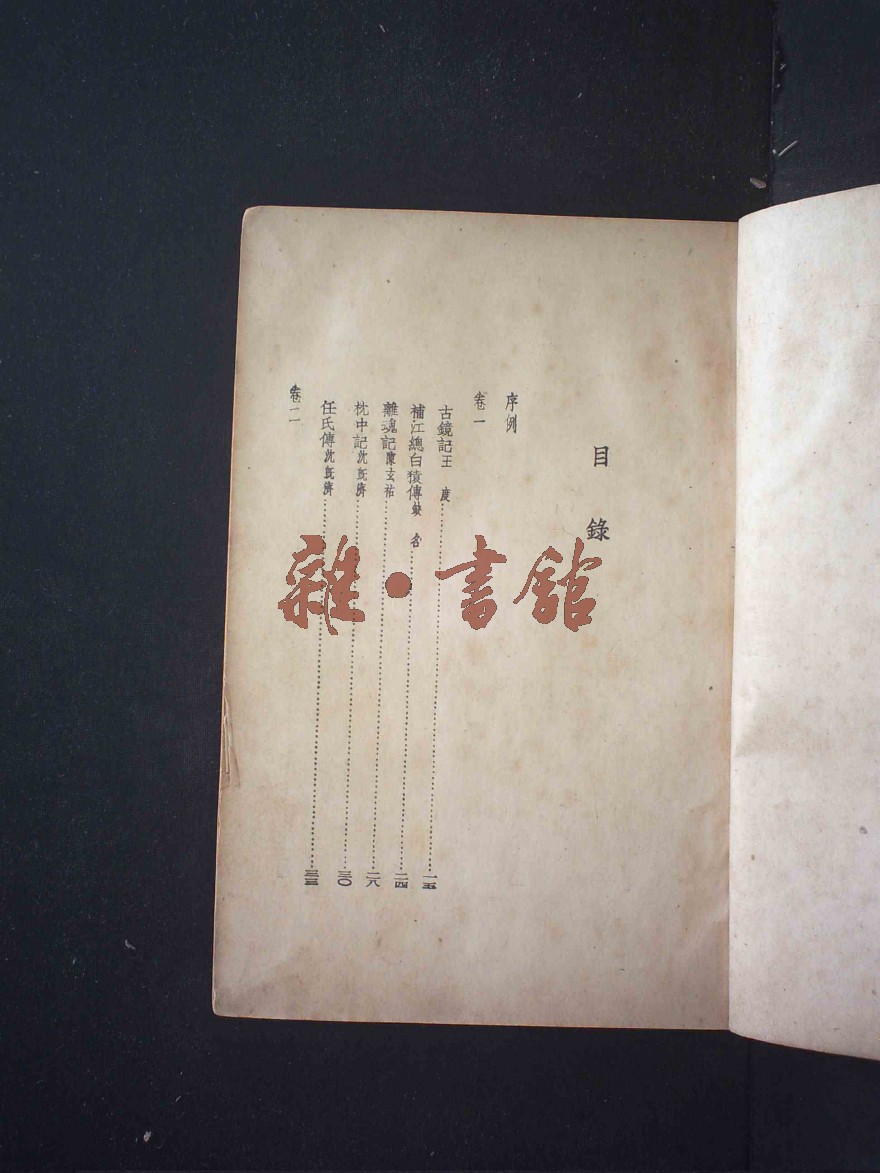 目錄
序例
卷一
古鏡記 王度 一五
補江總白猿傳 缺名 二四
離魂記 陳玄祐 二八
枕中記 沈既濟 三〇
任氏傳 沈既濟 三三
卷二
雜·書館